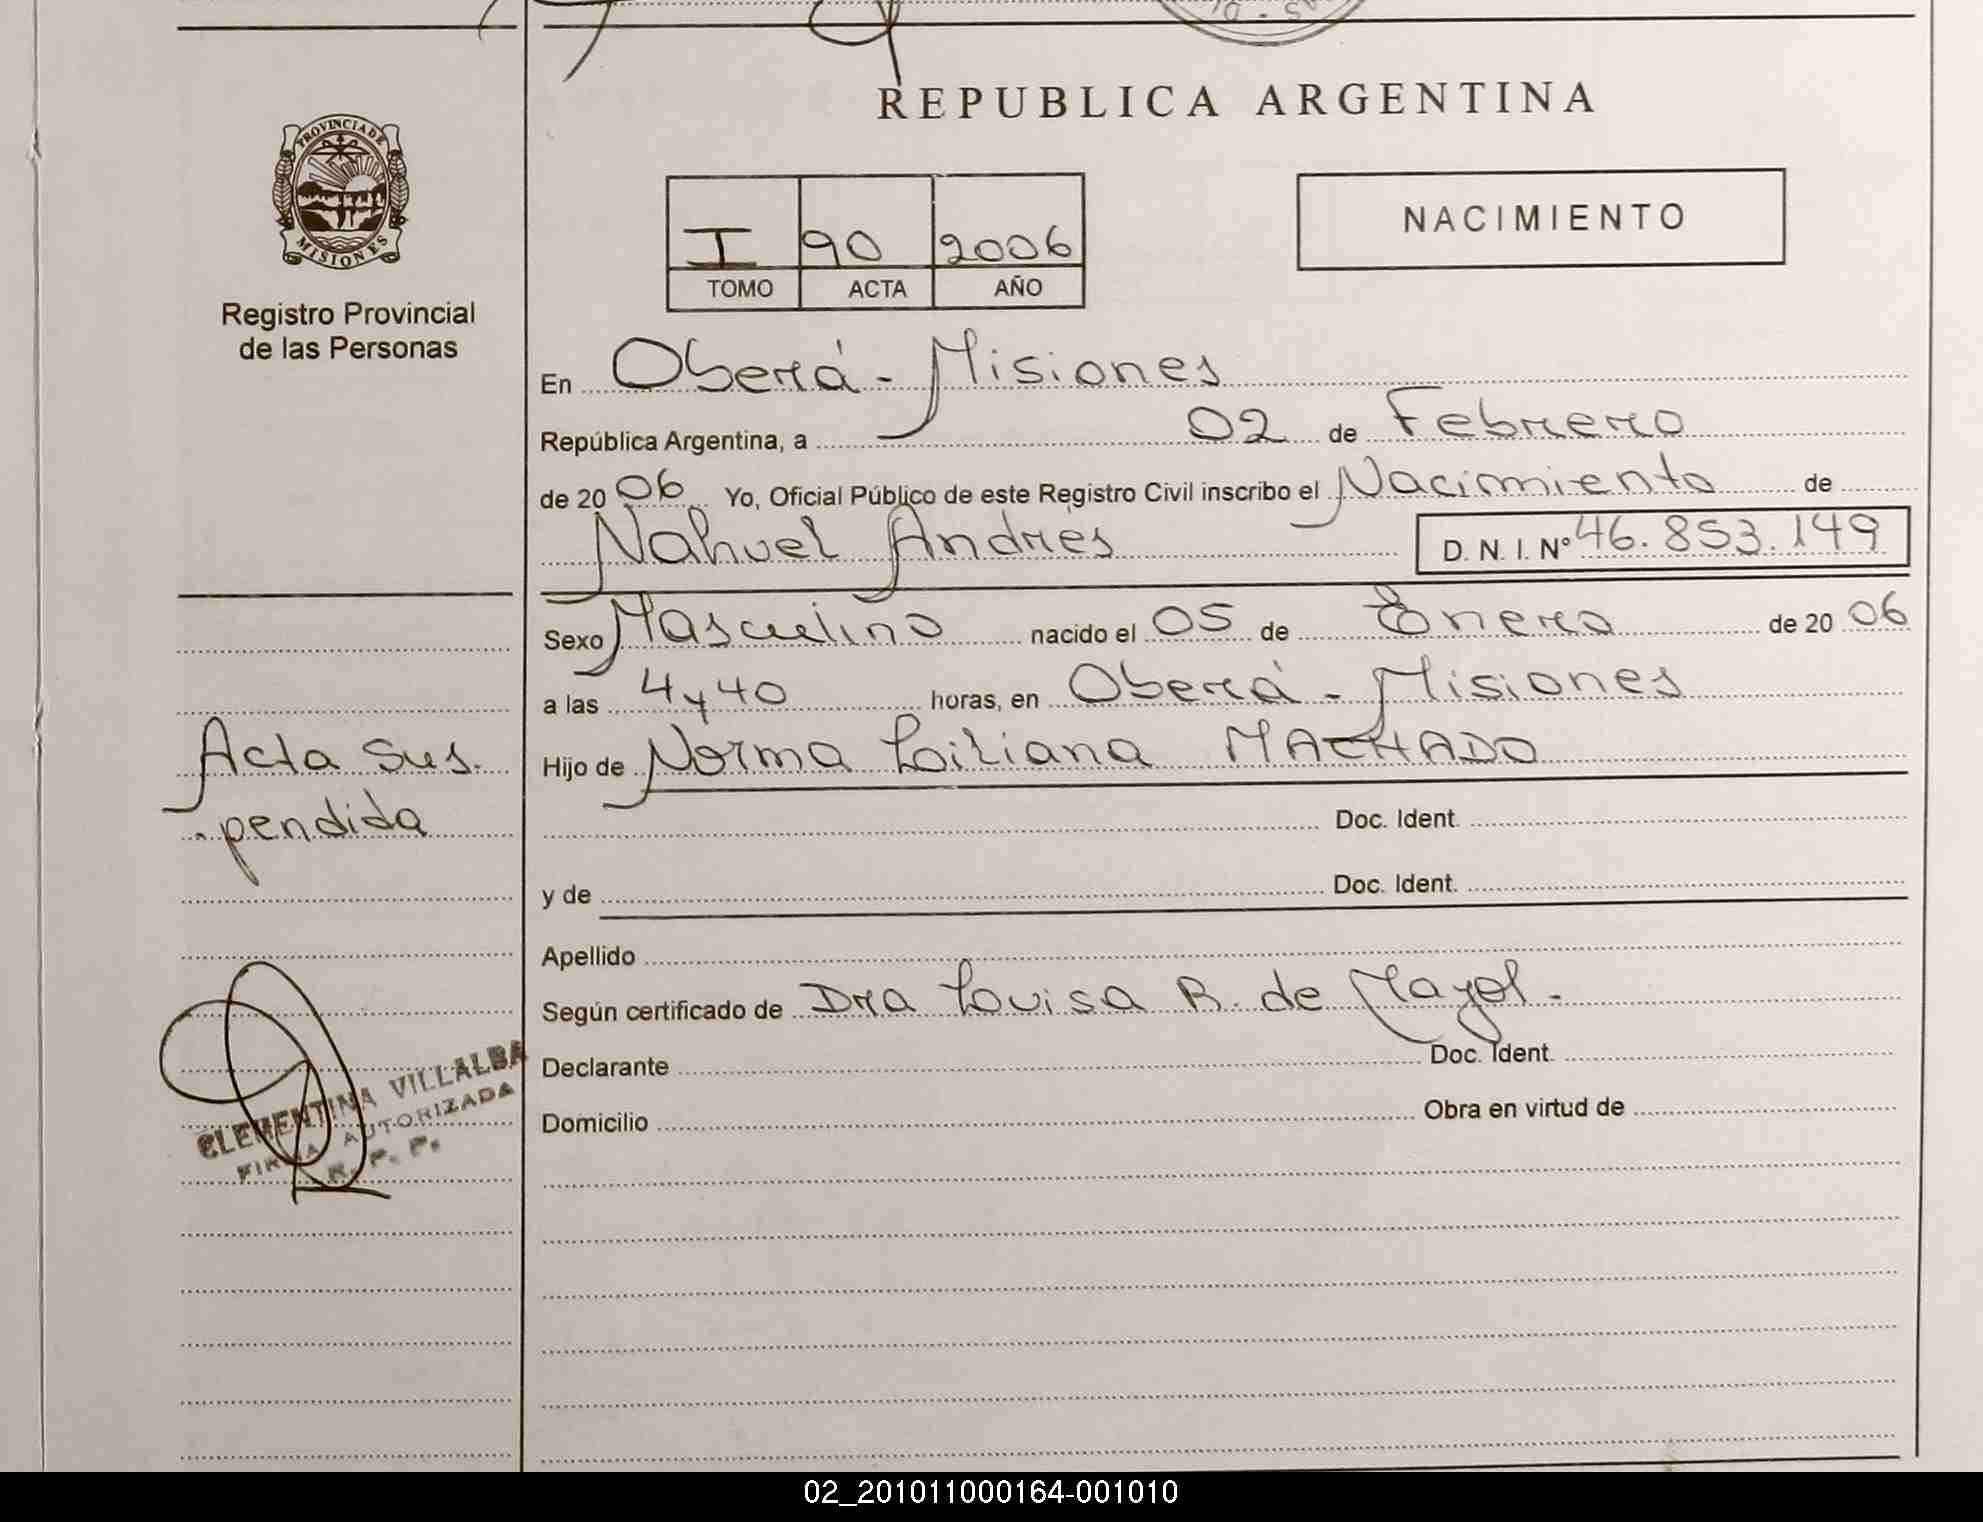 PROVINCIA DE
MISIONES
Registro Provincial
de las Personas
REPUBLICA ARGENTINA
I 90 2006
TOMO ACTA AÑO
NACIMIENTO
En Oberá - Misiones
República Argentina, a 02 de Febrero
de 20 06 Yo, Oficial Público de este Registro Civil inscribo el Nacimiento de
Nahuel Andres D. N. I. Nº 46.853.149
Sexo Masculino nacido el 05 de Enero de 20 06
a las 4 y 40 horas, en Oberá - Misiones
Hijo de Norma Liliana MACHADO
Doc. Ident.
y de Doc. Ident.
Apellido
Según certificado de Dra Louisa B. de Mayol.
Declarante Doc. Ident.
Domicilio Obra en virtud de
Acta Sus.
pendida
CLEMENTINA VILLALBA
FIRMA AUTORIZADA
R. P. P.
02_201011000164-001010